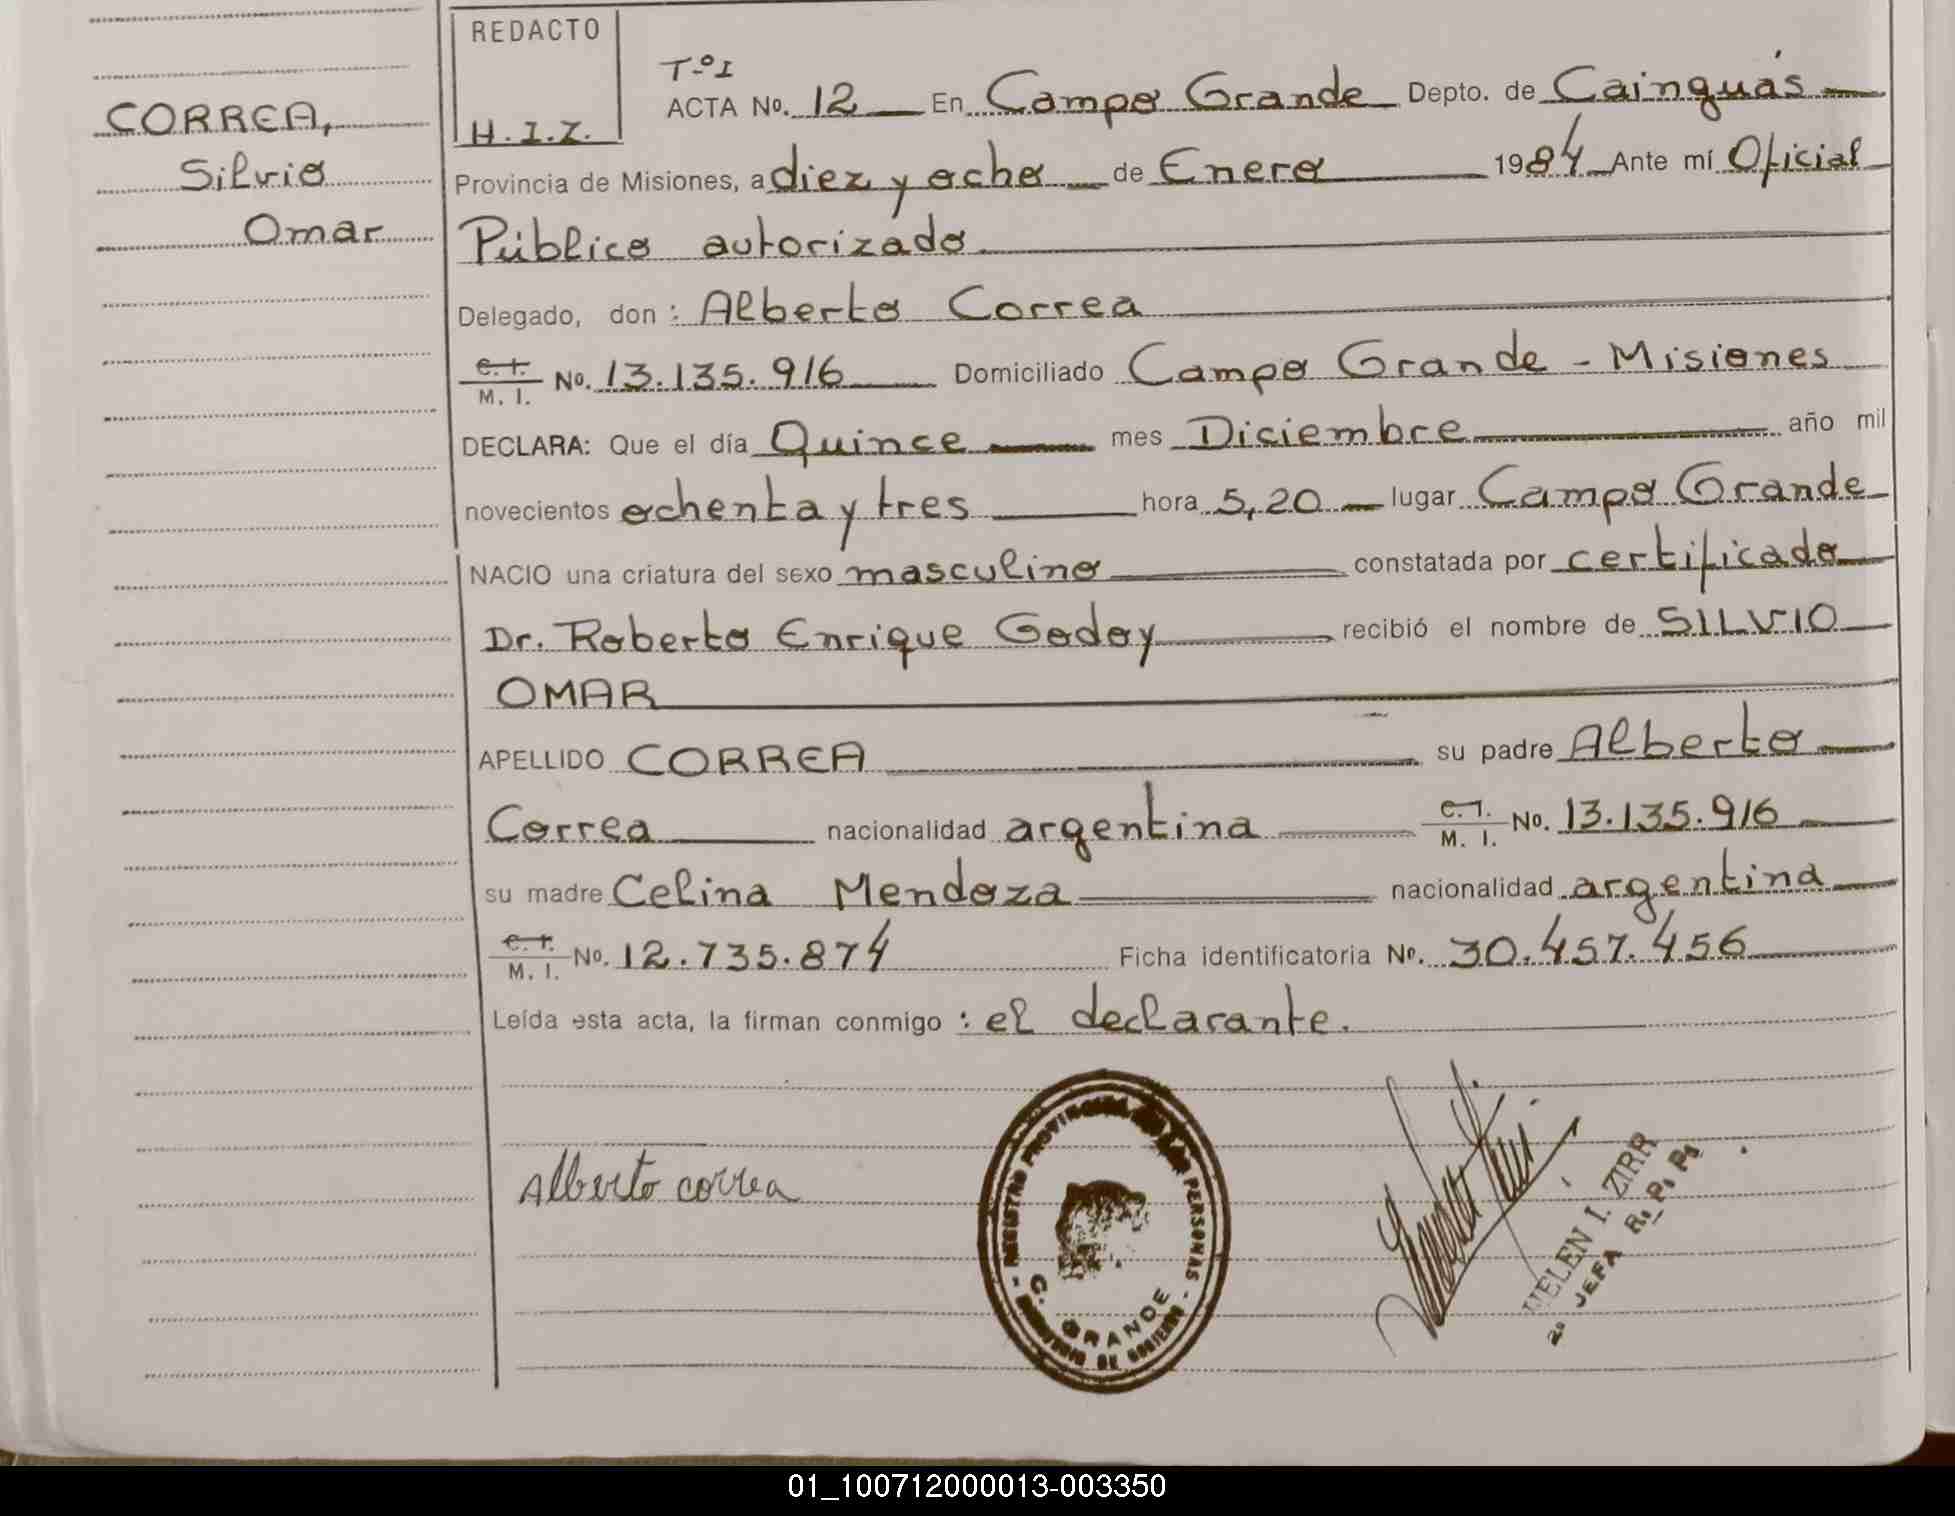 CORREA,
Silvio
Omar
REDACTO
H.I.Z.
Tº I
ACTA No. 12 En Campo Grande Depto. de Cainguás
Provincia de Misiones, a diez y ocho de Enero 1984 Ante mí Oficial
Público autorizado
Delegado, don: Alberto Correa
C. I. M. I. No. 13.135.916 Domiciliado Campo Grande - Misiones
DECLARA: Que el día Quince mes Diciembre año mil
novecientos ochenta y tres hora 5,20 lugar Campo Grande
NACIO una criatura del sexo masculino constatada por certificado
Dr. Roberto Enrique Godoy recibió el nombre de SILVIO
OMAR
APELLIDO CORREA su padre Alberto
Correa nacionalidad argentina C. I. M. I. No. 13.135.916
su madre Celina Mendoza nacionalidad argentina
C. I. M. I. No. 12.735.874 Ficha identificatoria No. 30.457.456
Leída esta acta, la firman conmigo: el declarante.
Alberto correa
REGISTRO PROVINCIAL DE LAS PERSONAS
C. GRANDE
MINISTERIO DE GOBIERNO
HELEN I. ZIRR
2a. JEFA R. P. P.
01_100712000013-003350